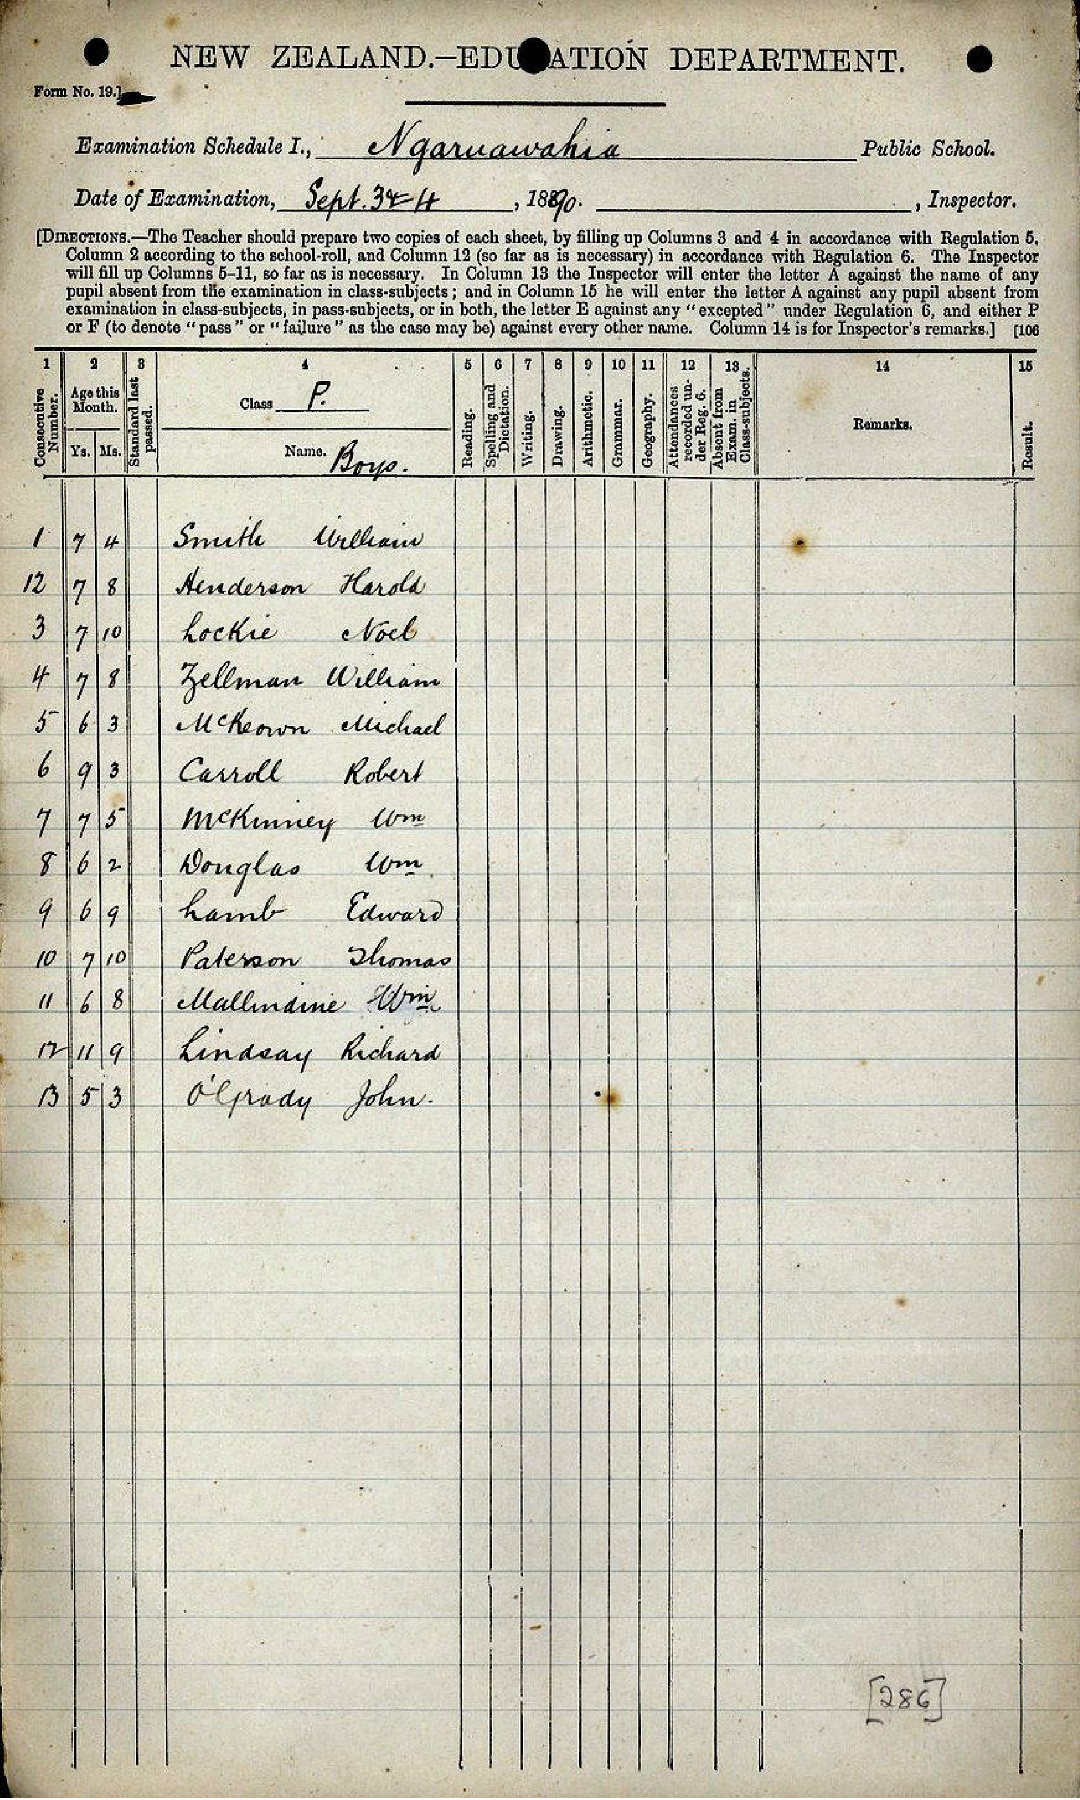 NEW ZEALAND.—EDU ATION DEPARTMENT.
Form No. 19.]
Examination Schedule I., Ngaruawahia Public School.
Date of Examination, Sept. 3 & 4, 1890. , Inspector.
[DIRECTIONS.—The Teacher should prepare two copies of each sheet, by filling up Columns 3 and 4 in accordance with Regulation 5,
Column 2 according to the school-roll, and Column 12 (so far as is necessary) in accordance with Regulation 6. The Inspector
will fill up Columns 5–11, so far as is necessary. In Column 13 the Inspector will enter the letter A against the name of any
pupil absent from the examination in class-subjects; and in Column 15 he will enter the letter A against any pupil absent from
examination in class-subjects, in pass-subjects, or in both, the letter E against any "excepted" under Regulation 6, and either P
or F (to denote "pass" or "failure" as the case may be) against every other name. Column 14 is for Inspector's remarks.] [106
1 2 3 4 5 6 7 8 9 10 11 12 13 14 15
Consecutive Number.
Age this Month.
Ys. Ms.
Standard last passed.
Class P.
Name. Boys.
Reading.
Spelling and Dictation.
Writing.
Drawing.
Arithmetic.
Grammar.
Geography.
Attendances recorded under Reg. 6.
Absent from Exam. in Class-subjects.
Remarks.
Result.
1 7 4 Smith William
12 7 8 Henderson Harold
3 7 10 Lockie Noel
4 7 8 Zellman William
5 6 3 McKeown Michael
6 9 3 Carroll Robert
7 7 5 McKinney Wm
8 6 2 Douglas Wm.
9 6 9 Lamb Edward
10 7 10 Paterson Thomas
11 6 8 Mallindine Wm
12 11 9 Lindsay Richard
13 5 3 O'Grady John.
[286]